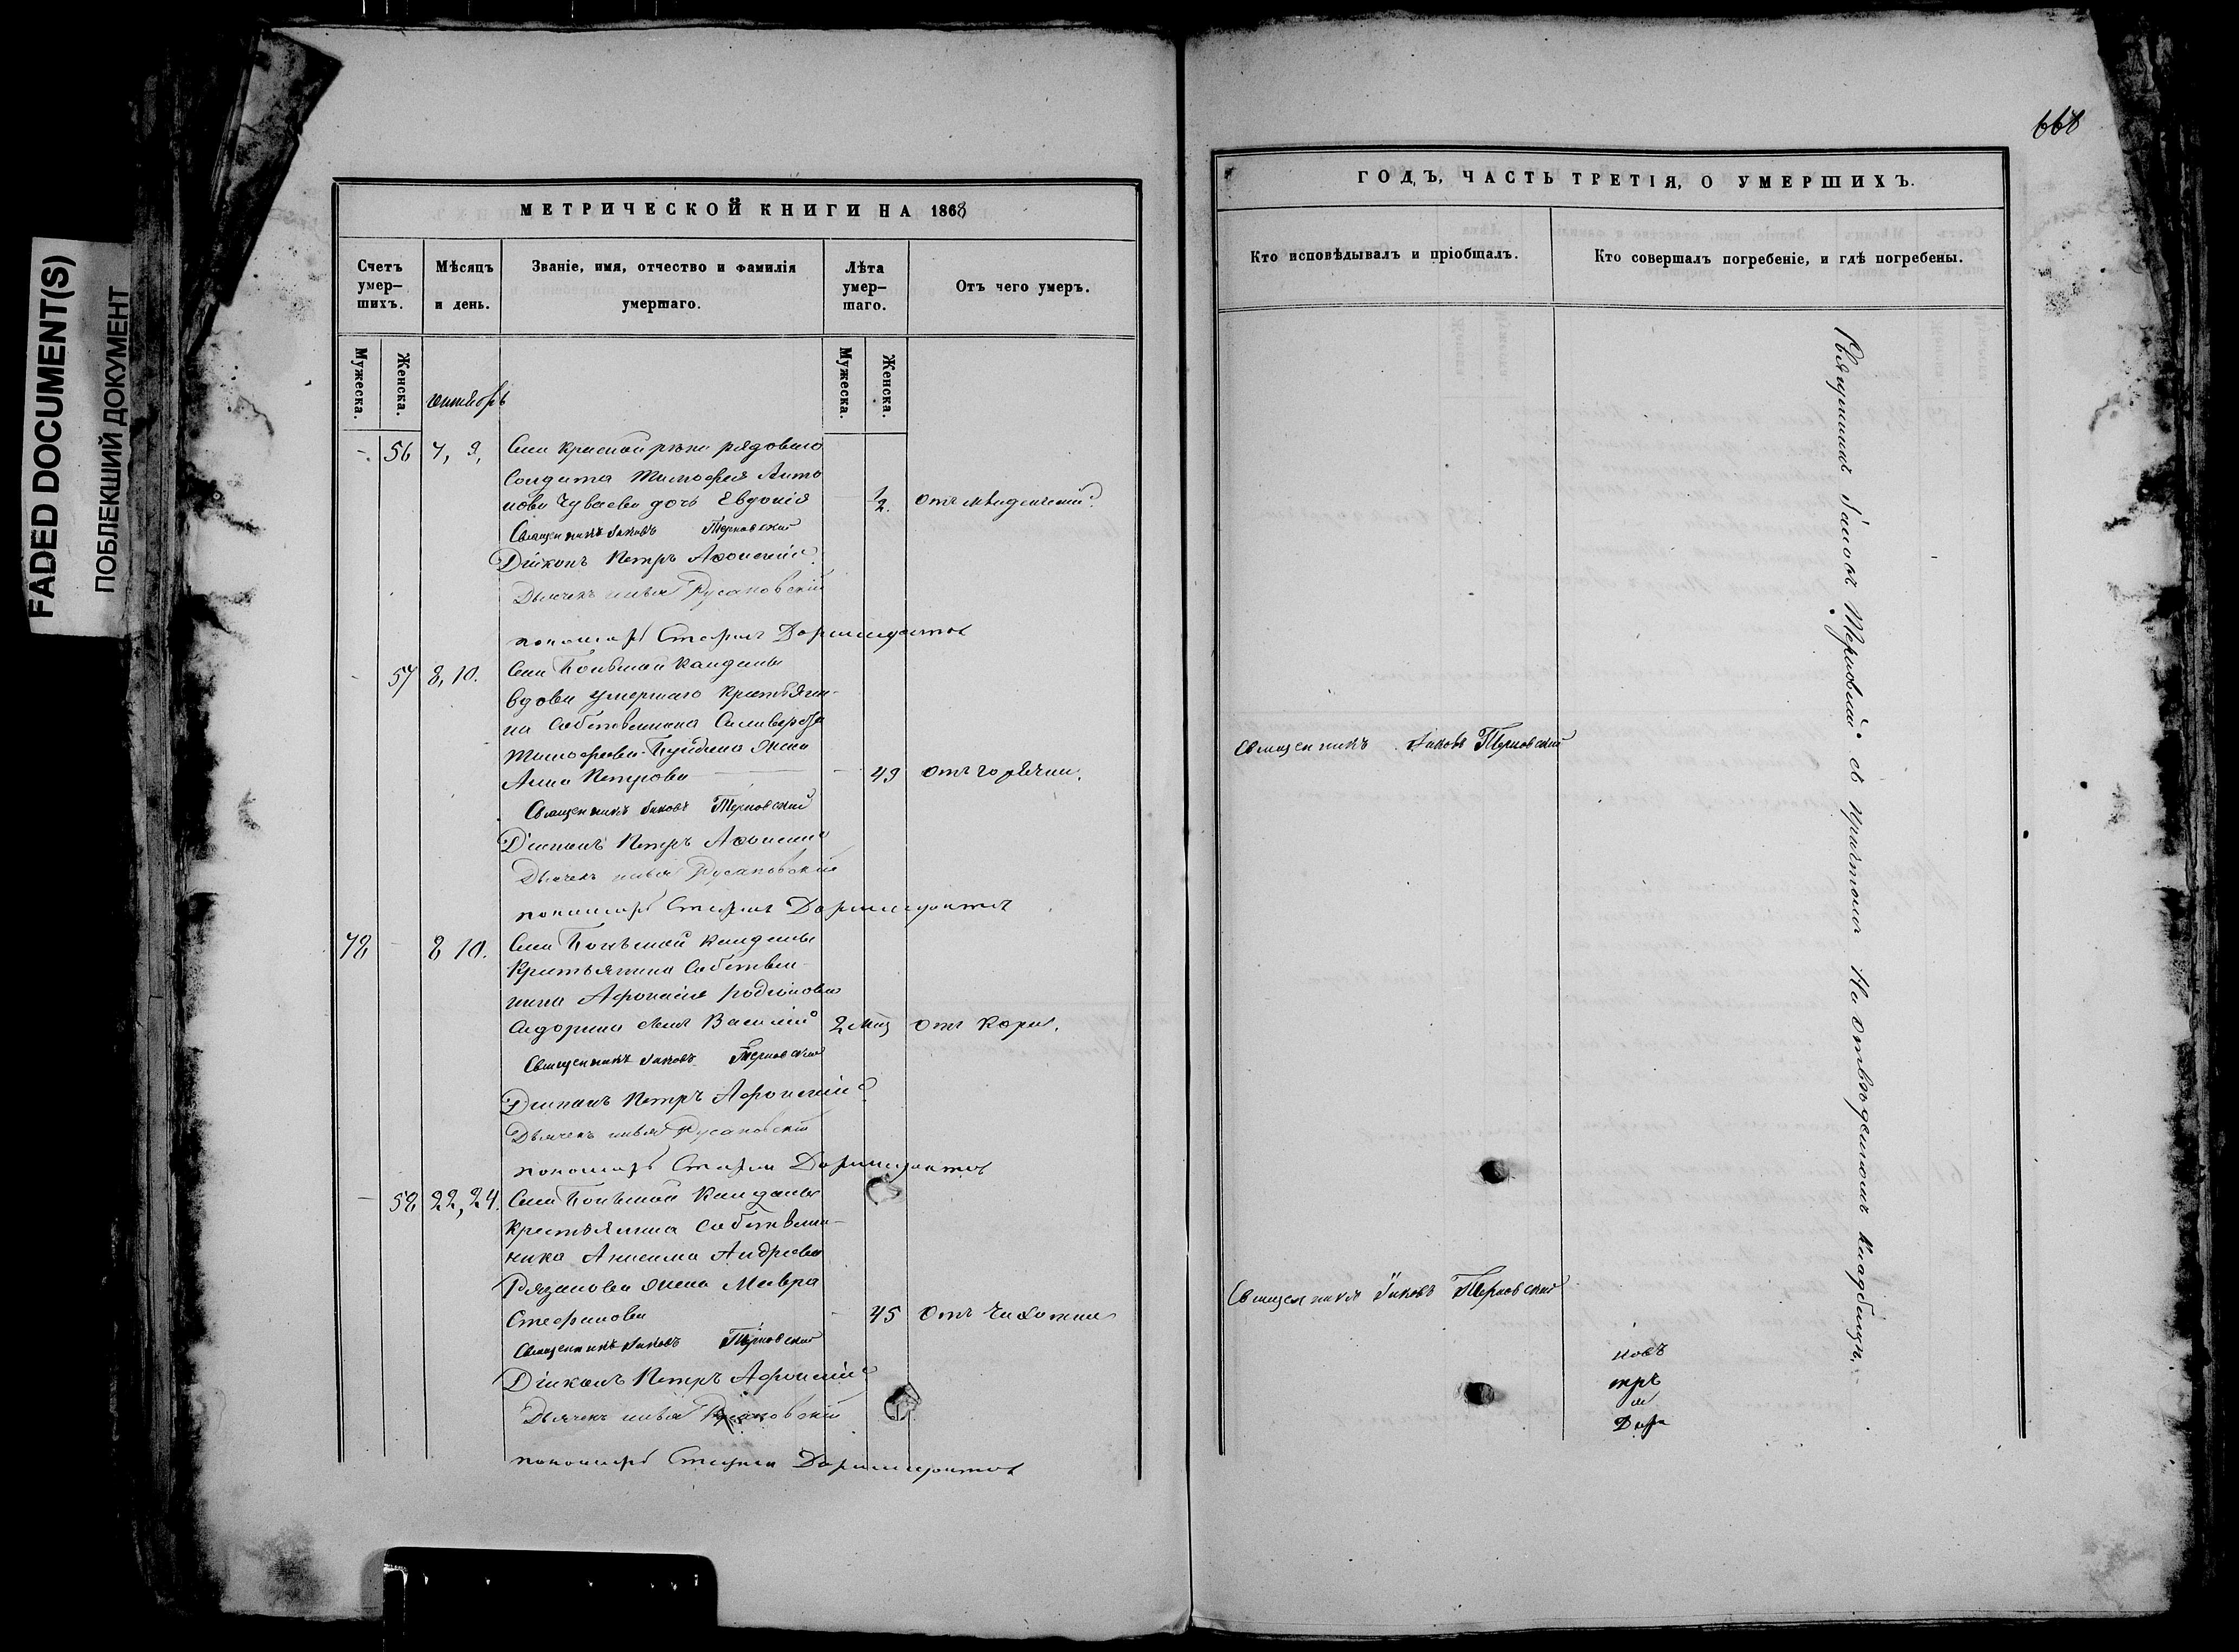 FADED DOCUMENT(S)
ПОБЛЕКШИЙ ДОКУМЕНТ
МЕТРИЧЕСКОЙ КНИГИ НА 1868
Счетъ умер-шихъ.
Мѣсяцъ и день.
Званіе, имя, отчество и фамилія умершаго.
Лѣта умер-шаго.
Отъ чего умеръ.
Мужеска.
Женска.
Мужеска.
Женска.
октябрь
56 7, 9, Села Красной рѣки рядоваго
солдата Тимофея Анто
нова Чуваева дочь Евдокія 1/2. отъ младенческой
Священникъ Іаковъ Терновскій
Діаконъ Петръ Афонскій
Дьячекъ Русановскій
пономарь Стефанъ Доримедонтов
57 8, 10. Села Большой Кандалы
вдова умершаго крестьяни-
на собственника Силиверста
Тимофеева жена
Анна Петрова 49 отъ горячки.
Священникъ Іаковъ Терновскій
Діаконъ Петръ Афонскій
Дьячекъ Русановскій
пономарь Стефанъ Доримедонтов
78 8 10. Села Большой Кандалы
Крестьянина Собствен-
ника Афонасія Родіонова
Сидорина сынъ Василій 2 мѣс отъ кори.
Священникъ Іаковъ Терновскій
Діаконъ Петръ Афонскій
Дьячекъ Русановскій
пономарь Стефанъ Доримедонтов
58 22, 24. Села Большой Кандалы
крестьянина собствен-
ника Анисима Андреева
Рязанова жена Мавра
Стефанова 45 отъ чахотки
Священникъ Іаковъ Терновскій
Діаконъ Петръ Афонскій
Дьячекъ Русановскій
пономарь Стефанъ Доримедонтов
668
ГОДЪ, ЧАСТЬ ТРЕТІЯ, О УМЕРШИХЪ.
Кто исповѣдывалъ и пріобщалъ.
Кто совершалъ погребеніе, и гдѣ погребены.
Священникъ Іаковъ Терновскій
Священникъ Іаковъ Терновскій
Священникъ Іаковъ Терновскій съ причтомъ На отведенномъ кладбищѣ.
ковъ
тръ
Дор